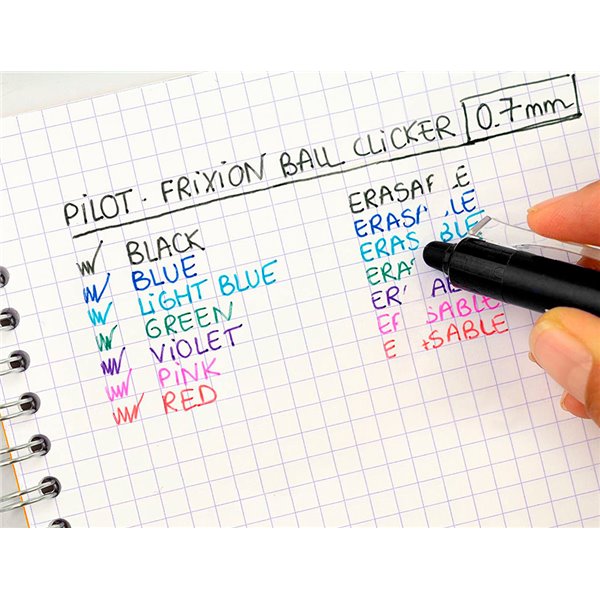 PILOT - FRIXION BALL CLICKER 0.7mm
BLACK ERASAF LE
BLUE ERASA LE
LIGHT BLUE ERAS BLE
GREEN ERA
VIOLET ER ABL
PINK EF SABLE
RED E SABLE